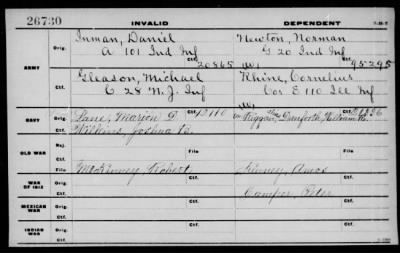 26730 INVALID DEPENDENT
ARMY
Orig. Inman, Daniel Newton, Norman
A 101 Ind Inf G 20 Ind Inf
Ctf. 20865 Ctf. 95295
Orig. Gleason, Michael Rhine, Cornelius
C 28 N.J. Inf Cor E 110 Ill Inf
Ctf. Ctf.
NAVY
Orig. Lane, Marion D. Danforth, William
Ctf. Wilkins, Joshua B. Ctf.
OLD WAR
Maj.
Ctf. File File
WAR OF 1812
Orig. McKinney, Robert Kinney, Amos
Ctf. Camper, Peter
MEXICAN WAR
Orig.
Ctf. Ctf.
INDIAN WAR
Orig.
Ctf. Ctf.